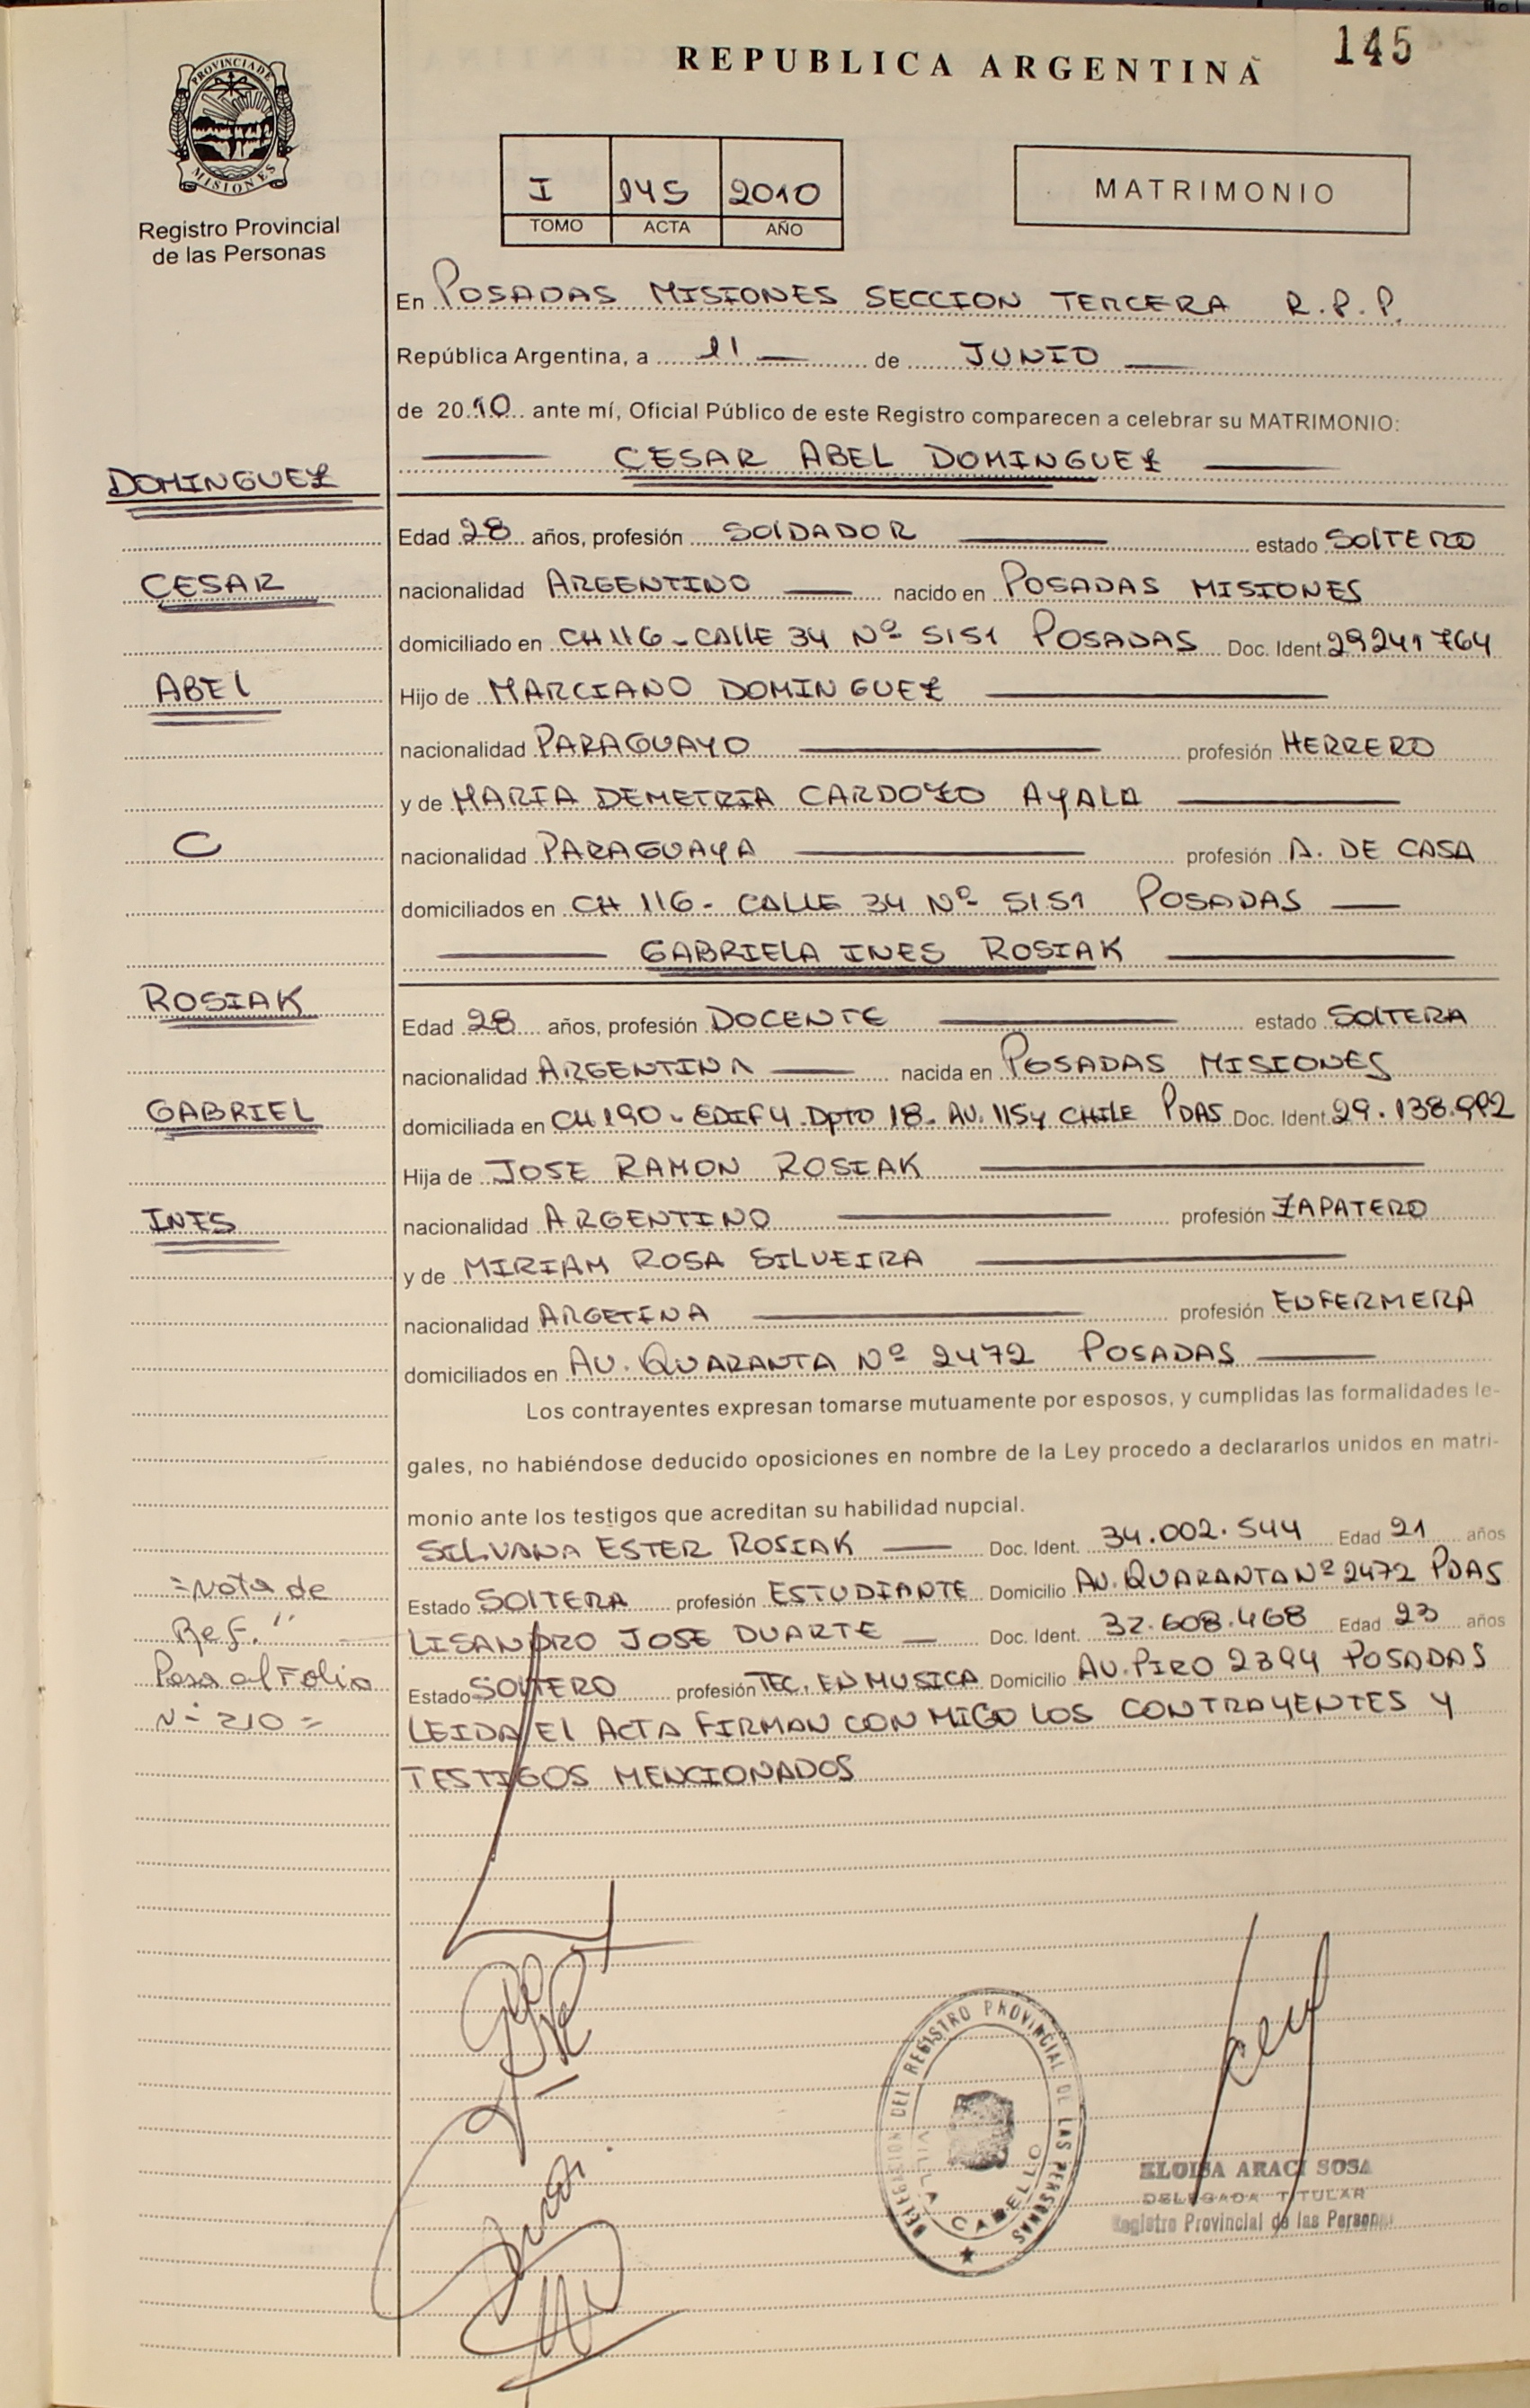 REPUBLICA ARGENTINA
145
PROVINCIA DE
MISIONES
Registro Provincial
de las Personas
I 145 2010
TOMO ACTA AÑO
MATRIMONIO
En POSADAS MISIONES SECCION TERCERA R.P.P.
República Argentina, a 11 de JUNIO
de 2010 ante mí, Oficial Público de este Registro comparecen a celebrar su MATRIMONIO:
CESAR ABEL DOMINGUEZ
DOMINGUEZ
Edad 28 años, profesión SOLDADOR estado SOLTERO
CESAR
nacionalidad ARGENTINO nacido en POSADAS MISIONES
domiciliado en CH 116 - CALLE 34 Nº 5151 POSADAS Doc. Ident. 29241764
ABEL
Hijo de MARCIANO DOMINGUEZ
nacionalidad PARAGUAYO profesión HERRERO
y de MARIA DEMETRIA CARDOZO AYALA
C
nacionalidad PARAGUAYA profesión A. DE CASA
domiciliados en CH 116 - CALLE 34 Nº 5151 POSADAS
GABRIELA INES ROSIAK
ROSIAK
Edad 28 años, profesión DOCENTE estado SOLTERA
nacionalidad ARGENTINA nacida en POSADAS MISIONES
GABRIEL
domiciliada en CH 190 - EDIF 4 Dpto 18 - AV. 115 y CHILE PDAS Doc. Ident. 29.138.992
Hija de JOSE RAMON ROSIAK
INES
nacionalidad ARGENTINO profesión ZAPATERO
y de MIRIAM ROSA SILVEIRA
nacionalidad ARGETINA profesión ENFERMERA
domiciliados en AV. QUARANTA Nº 2472 POSADAS
Los contrayentes expresan tomarse mutuamente por esposos, y cumplidas las formalidades le-
gales, no habiéndose deducido oposiciones en nombre de la Ley procedo a declararlos unidos en matri-
monio ante los testigos que acreditan su habilidad nupcial.
SILVANA ESTER ROSIAK Doc. Ident. 34.002.544 Edad 21 años
Estado SOLTERA profesión ESTUDIANTE Domicilio AV. QUARANTA Nº 2472 PDAS
LISANDRO JOSE DUARTE Doc. Ident. 32.608.468 Edad 23 años
Estado SOLTERO profesión TEC. EN MUSICA Domicilio AV. PIRO 2394 POSADAS
LEIDA EL ACTA FIRMAN CON MIGO LOS CONTRAYENTES Y
TESTIGOS MENCIONADOS
=Nota de
Ref."
Pasa al Folio
Nº 210=
DELEGACION DEL REGISTRO PROVINCIAL DE LAS PERSONAS
VILLA CABELLO
ELOISA ARACI SOSA
DELEGADA TITULAR
Registro Provincial de las Personas